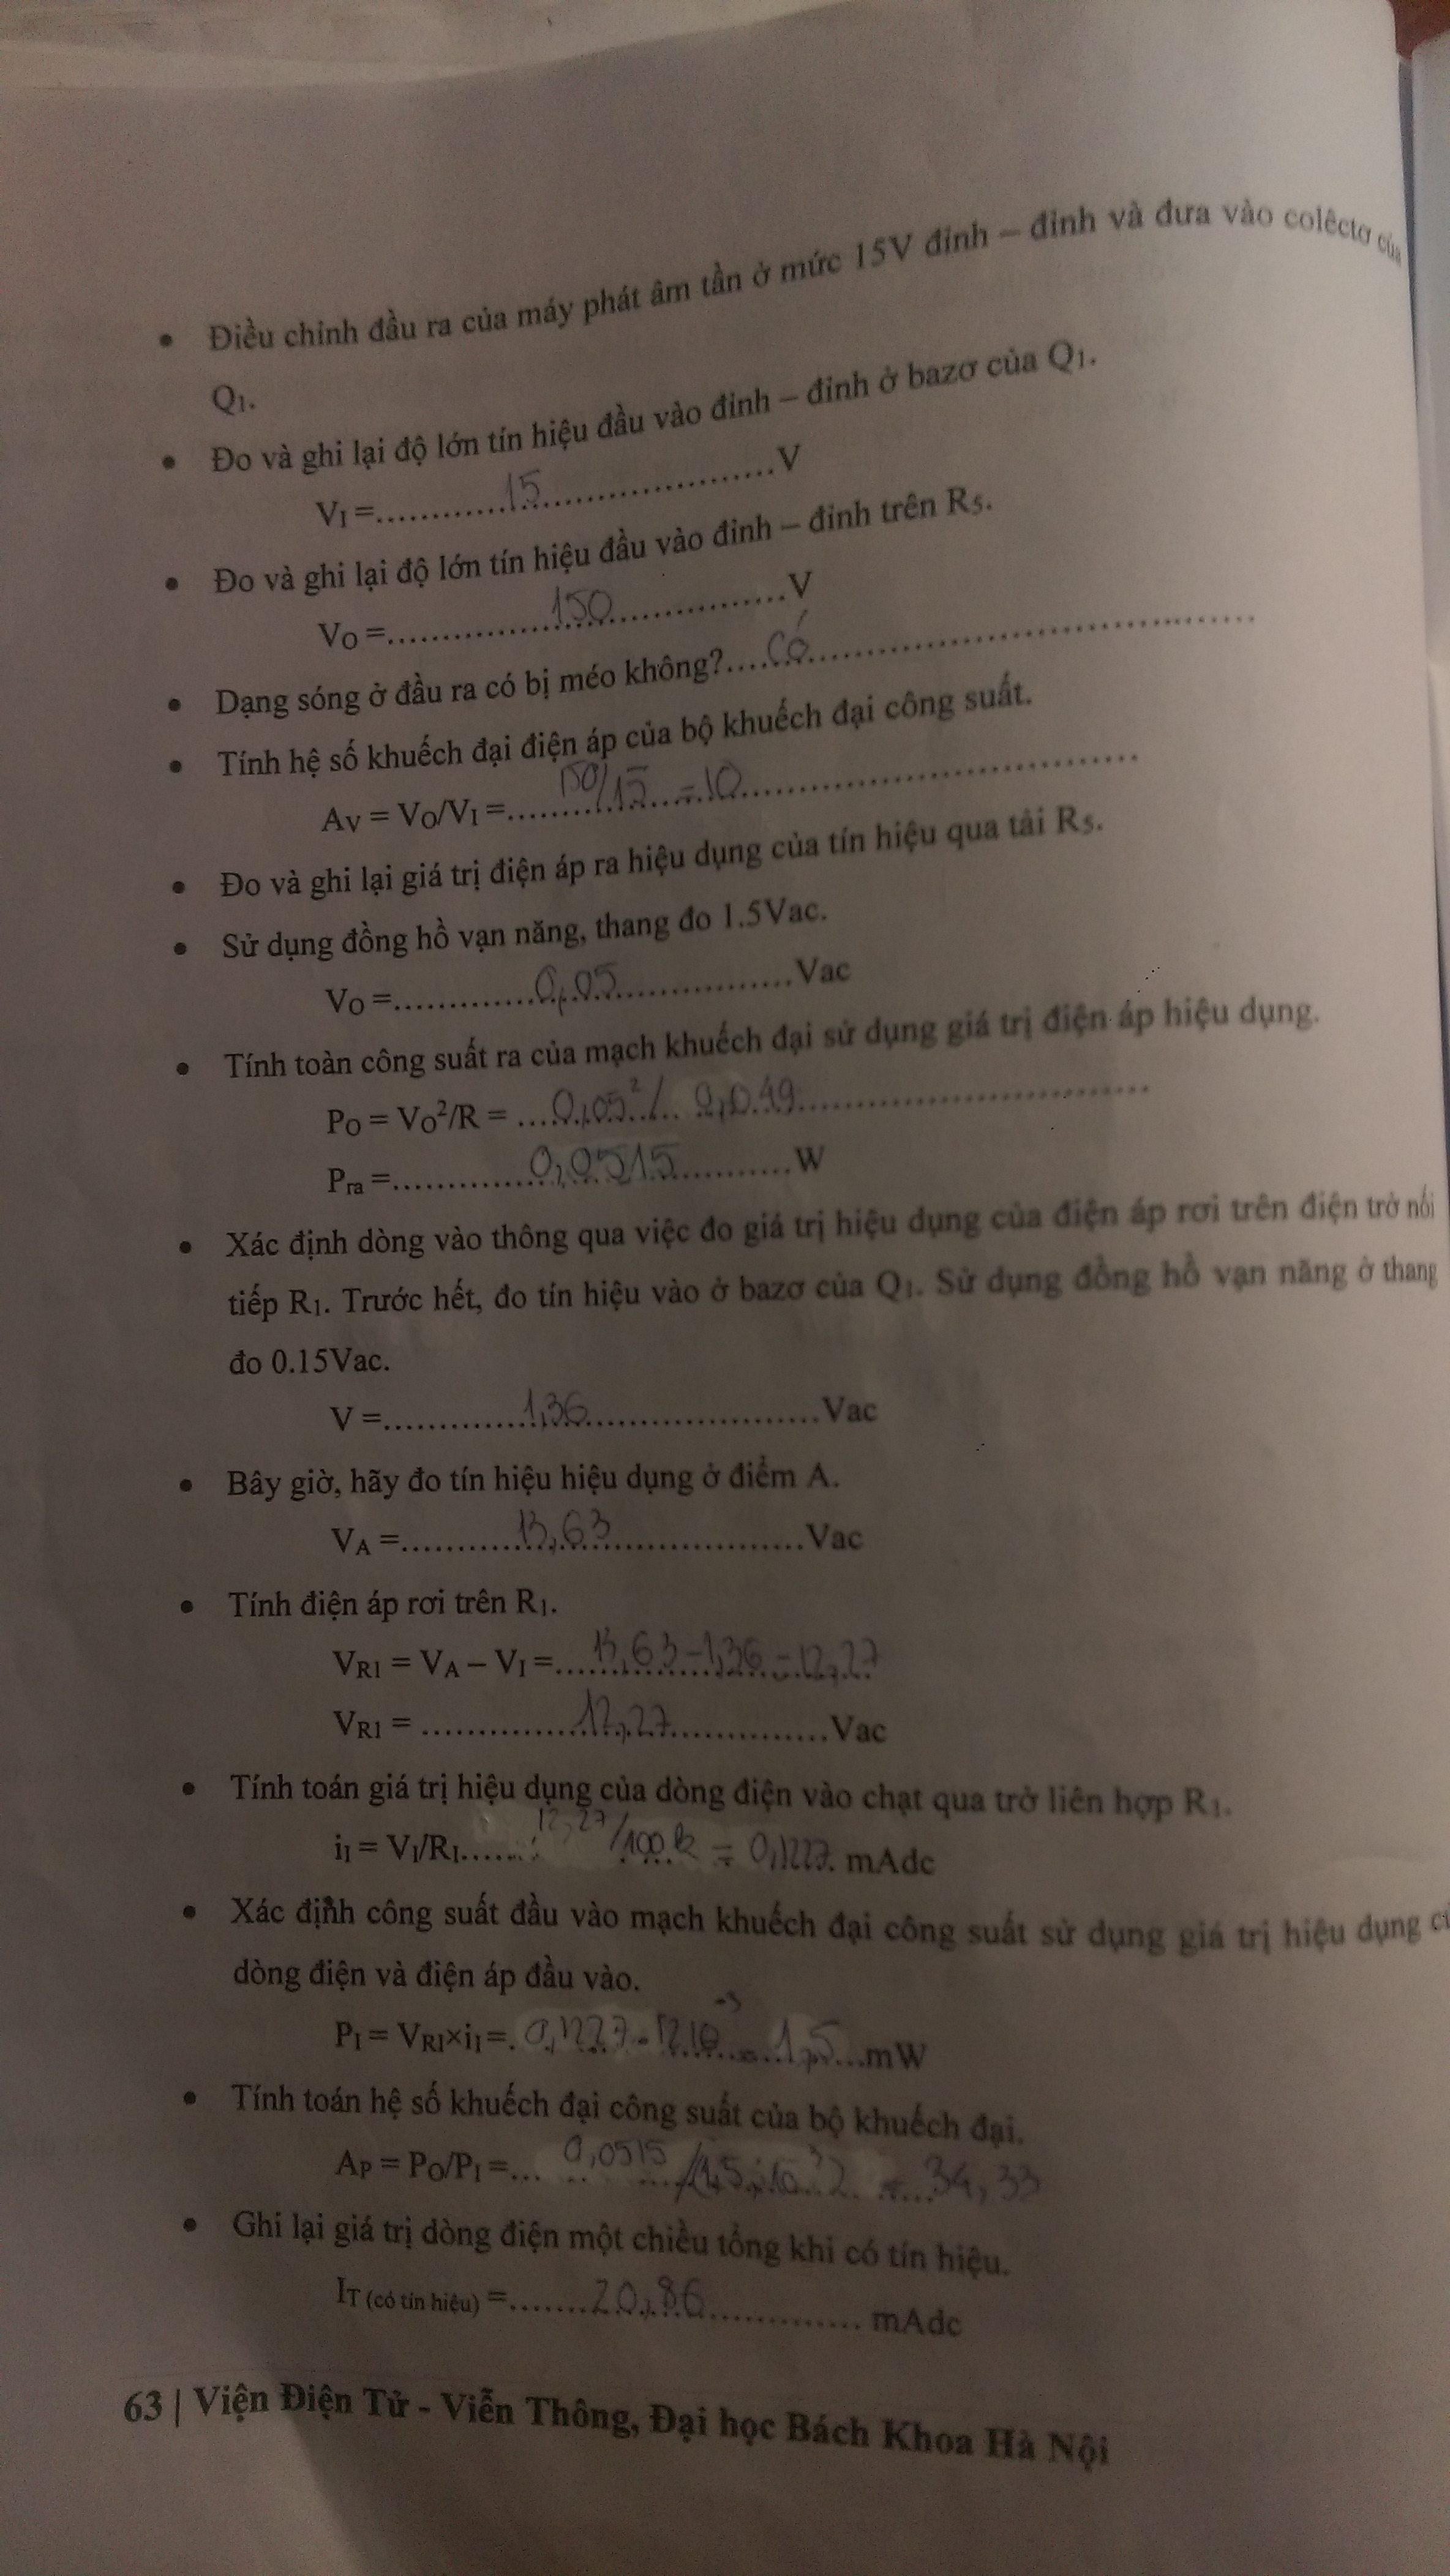 • Điều chỉnh đầu ra của máy phát âm tần ở mức 15V đỉnh – đỉnh và đưa vào colêctơ của
Q1.
• Đo và ghi lại độ lớn tín hiệu đầu vào đỉnh – đỉnh ở bazơ của Q1.
VI =............15.....................V
• Đo và ghi lại độ lớn tín hiệu đầu vào đỉnh – đỉnh trên R5.
VO =...............150................V
• Dạng sóng ở đầu ra có bị méo không?....Có........................................
• Tính hệ số khuếch đại điện áp của bộ khuếch đại công suất.
AV = VO/VI =......150/15 = 10...................................
• Đo và ghi lại giá trị điện áp ra hiệu dụng của tín hiệu qua tải R5.
• Sử dụng đồng hồ vạn năng, thang đo 1.5Vac.
VO =.............0,05................Vac
• Tính toàn công suất ra của mạch khuếch đại sử dụng giá trị điện áp hiệu dụng.
PO = VO²/R = ....0,05²/ 0,049...............................
Pra =.............0,0515..........W
• Xác định dòng vào thông qua việc đo giá trị hiệu dụng của điện áp rơi trên điện trở nối
tiếp R1. Trước hết, đo tín hiệu vào ở bazơ của Q1. Sử dụng đồng hồ vạn năng ở thang
đo 0.15Vac.
V =.............1,36.....................Vac
• Bây giờ, hãy đo tín hiệu hiệu dụng ở điểm A.
VA =...........13,63..................Vac
• Tính điện áp rơi trên R1.
VR1 = VA – VI =....13,63 - 1,36 = 12,27
VR1 = ..............12,27..............Vac
• Tính toán giá trị hiệu dụng của dòng điện vào chạt qua trở liên hợp R1.
iI = VI/R1......12,27/100k = 0,1227. mAdc
• Xác định công suất đầu vào mạch khuếch đại công suất sử dụng giá trị hiệu dụng
dòng điện và điện áp đầu vào.
PI = VR1×iI =. 0,1227 . 12.10⁻³ = 1,5...mW
• Tính toán hệ số khuếch đại công suất của bộ khuếch đại.
AP = PO/PI =... 0,0515 = 34,33
• Ghi lại giá trị dòng điện một chiều tổng khi có tín hiệu.
IT (có tín hiệu) =.......20,86.............. mAdc
63 | Viện Điện Tử - Viễn Thông, Đại học Bách Khoa Hà Nội